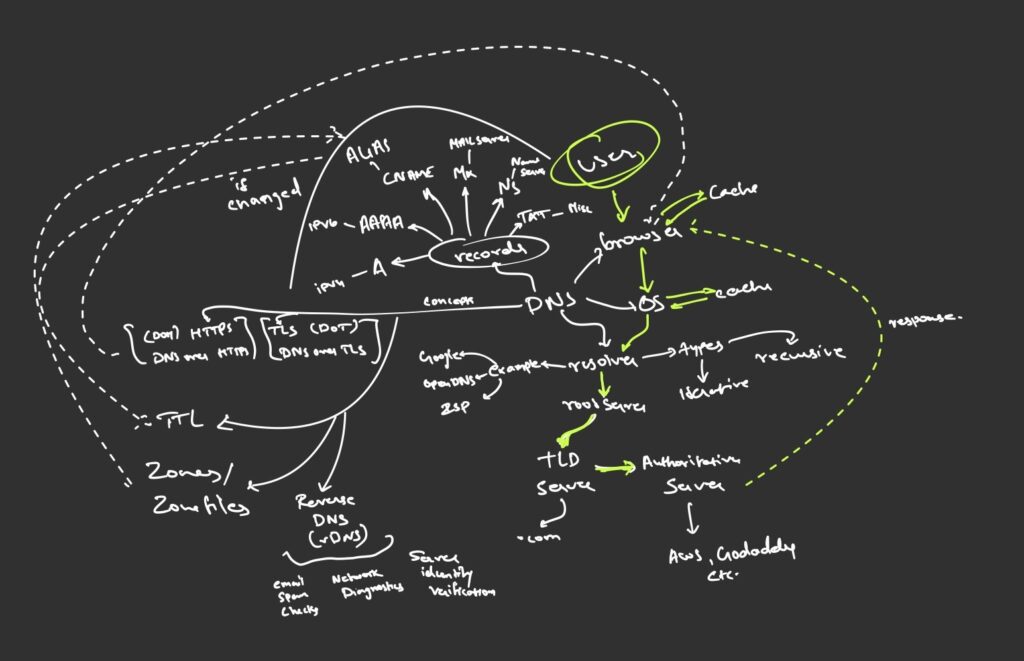 user
MAILServer
ALIAS
CNAME
Mx
Name
Server
NS
if
changed
Cache
IPV6 — AAAA
TXT — Misc
browser
records
IPV4 — A
concepts
DNS
OS
cache
(DOH) HTTPS
DNS over HTTPS
TLS (DOT)
DNS over TLS
response.
Google
OpenDNS
ISP
example
resolver
types
recursive
Iterative
root Server
TTL
TLD
Server
Authoritative
Server
Zones/
Zonefiles
Reverse
DNS
(rDNS)
.com
Aws, Godaddy
etc.
email
Spam
Checks
Network
Diagnostics
Server
identity
verification